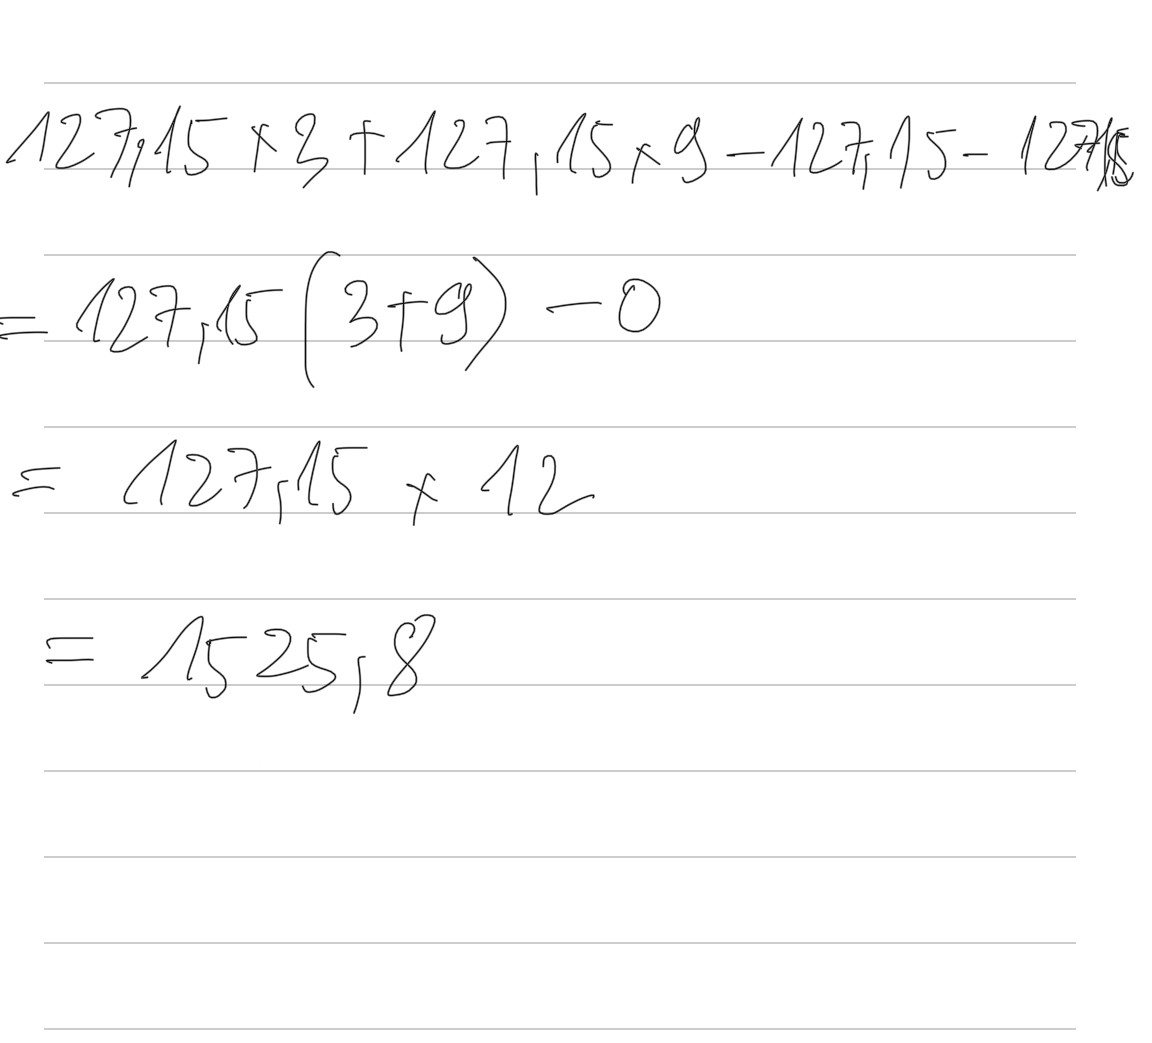 127,15 × 3 + 127,15 × 9 - 127,15 - 127,15
= 127,15 (3+9) - 0
= 127,15 × 12
= 1525,8